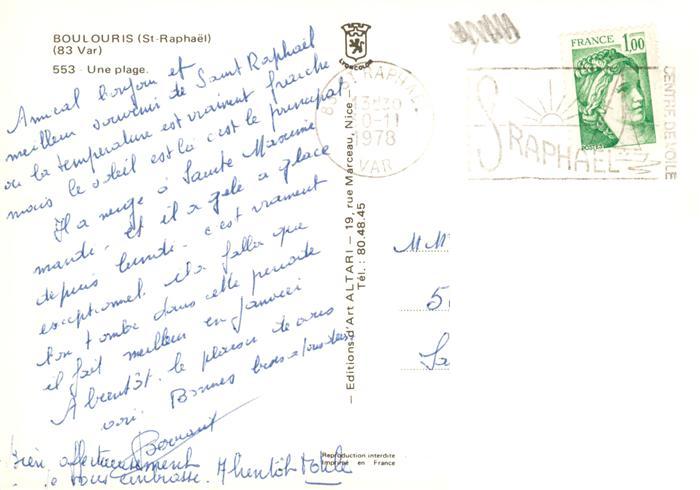 BOULOURIS (St-Raphaël)
(83 Var)
553 - Une plage.
Amical bonjour et
meilleur souvenir de Saint Raphaël
où la température est vraiment fraiche
mais le soleil est là c'est le principal.
Il a neigé à Sainte Maxime
mardi. et il a gelé a glace
depuis lundi. c'est vraiment
exceptionnel. il a fallu que
l'on tombe dans cette période
il fait meilleur en janvier
A bientôt. le plaisir de vous
voir. Bonnes bises a tous deux
Bien affectueusement
je vous embrasse. A bientôt
LYONCOLOR
— Editions d'Art ALTARI — 19, rue Marceau, Nice —
Tél. : 80.48.45
Reproduction interdite
Imprimé en France
83 ST RAPHAEL
13H30
1978
VAR
FRANCE
1,00
POSTES
ST RAPHAEL
CENTRE DE VOILE
M M
5